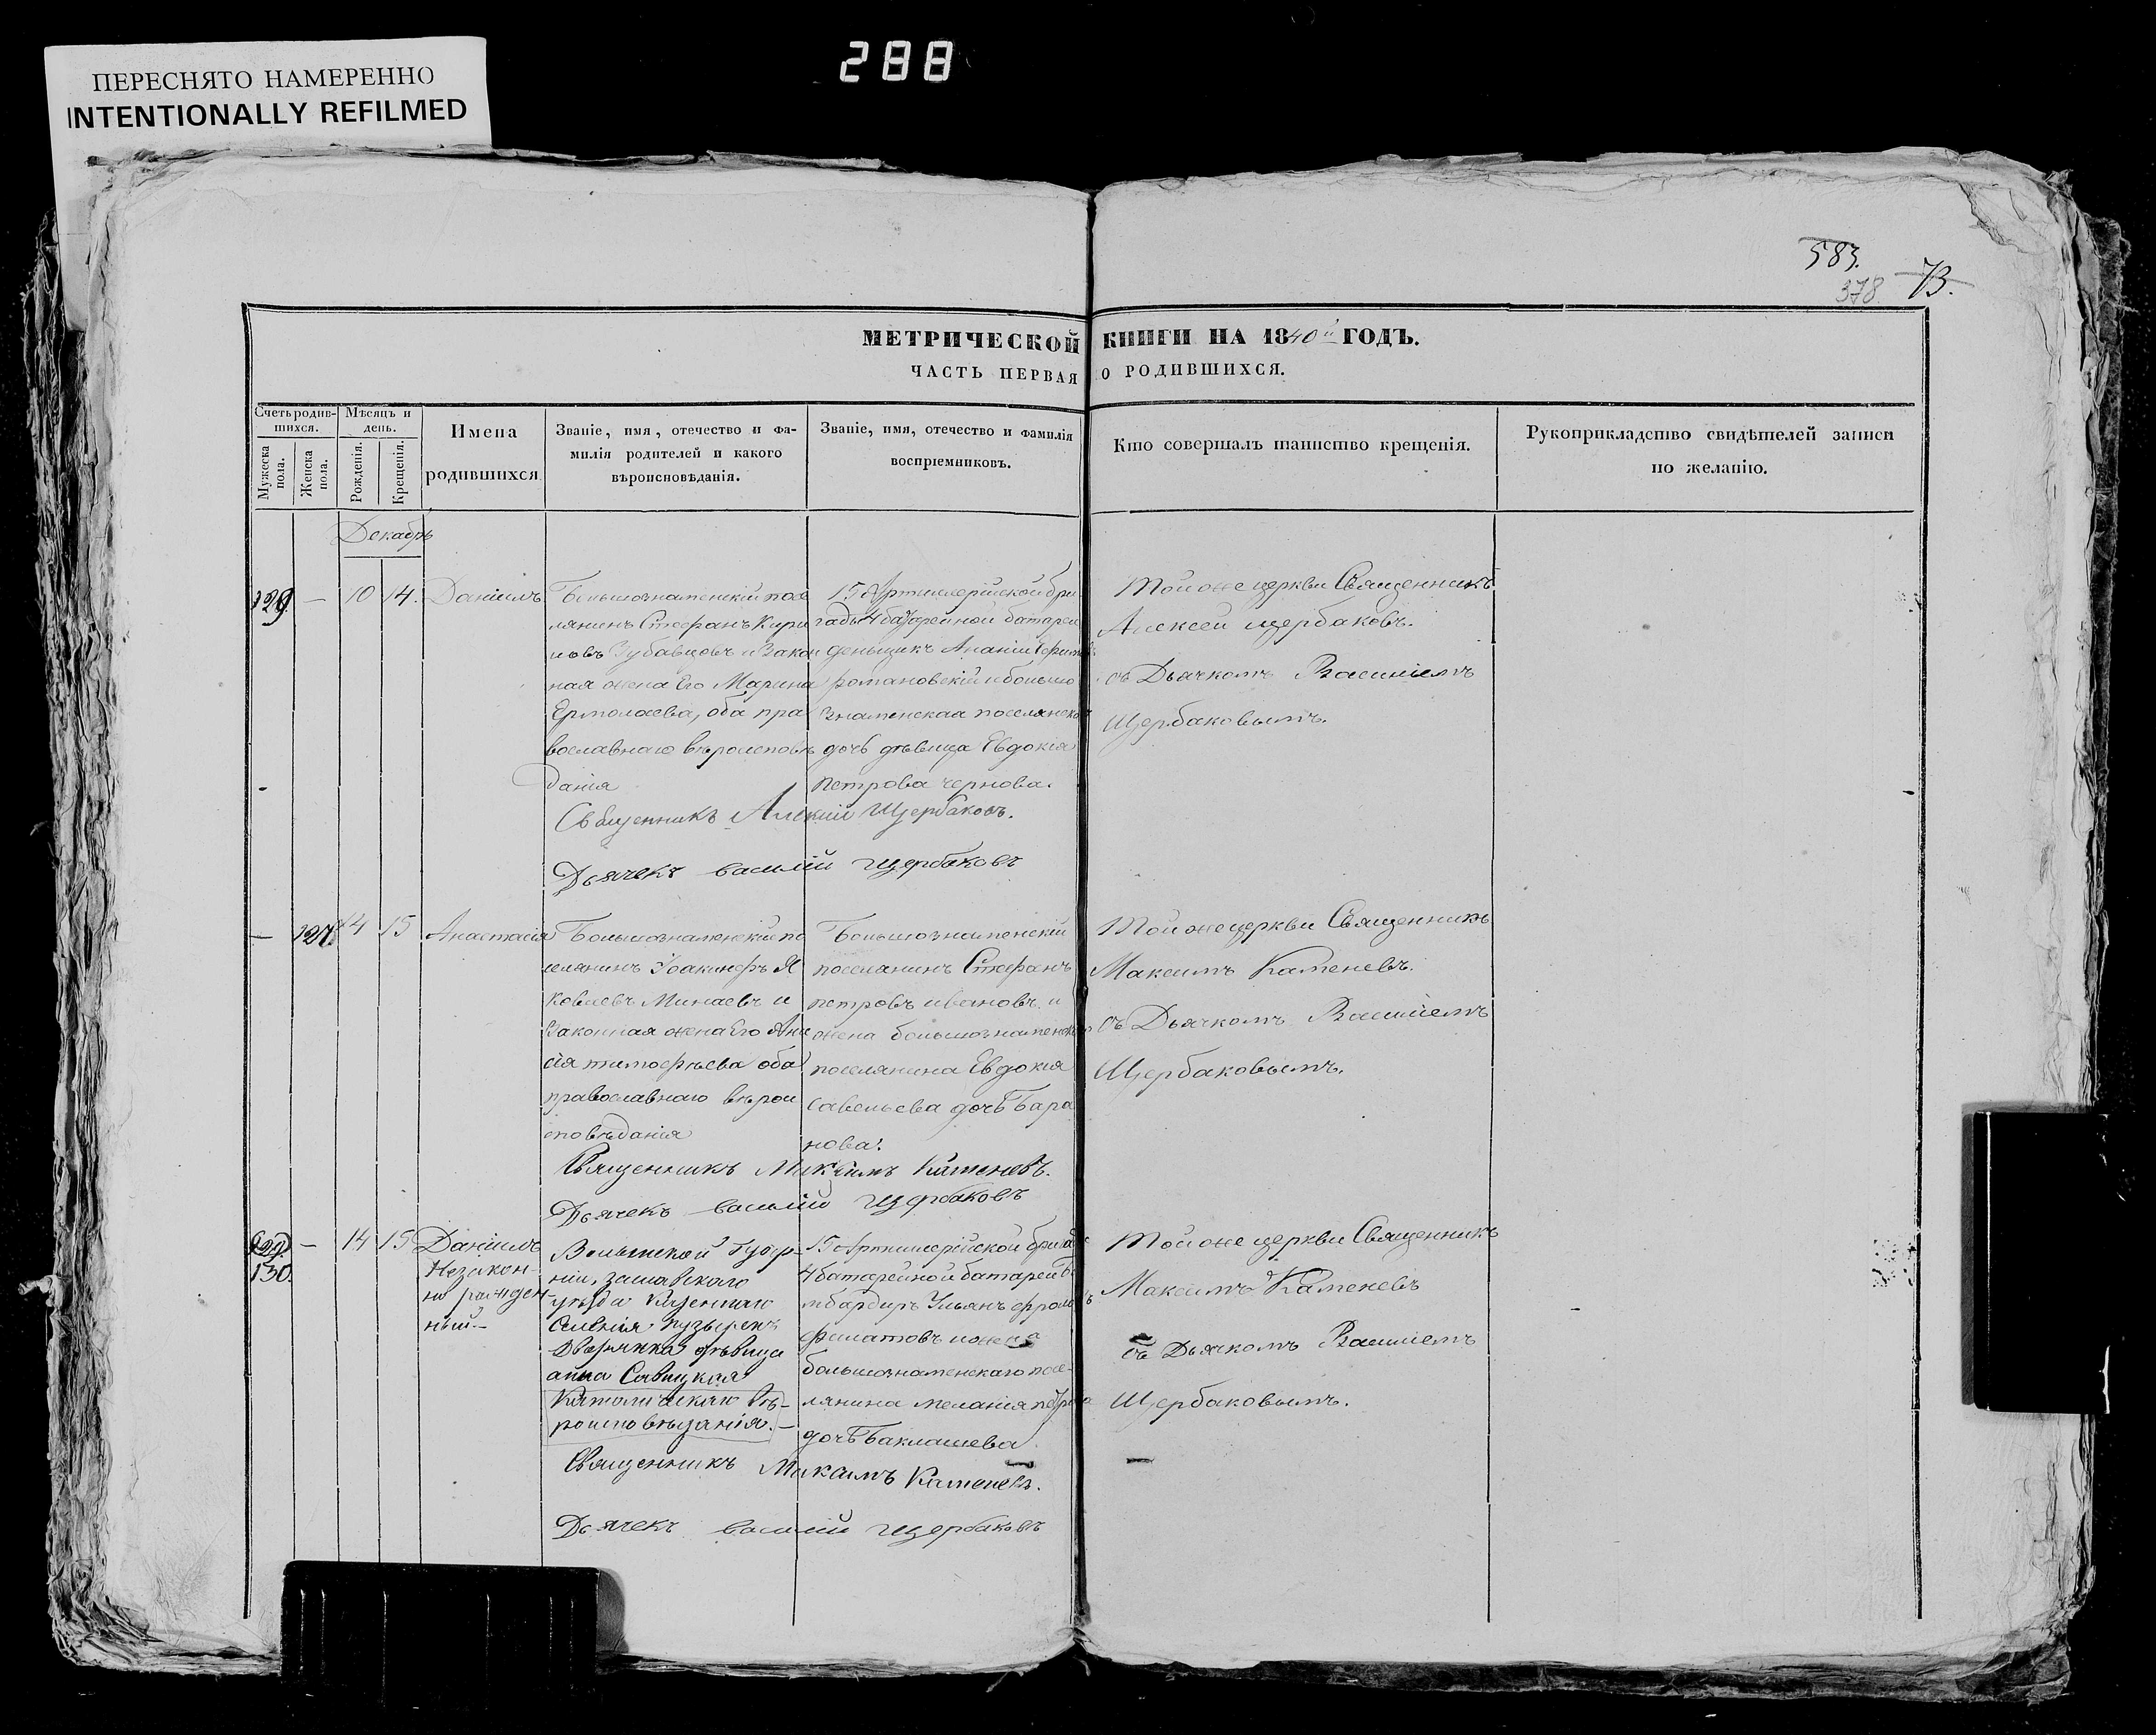 288
ПЕРЕСНЯТО НАМЕРЕННО
INTENTIONALLY REFILMED
583.
378.
73.
МЕТРИЧЕСКОЙ КНИГИ НА 1840й ГОДЪ.
ЧАСТЬ ПЕРВАЯ О РОДИВШИХСЯ.
Счетъ родив-
шихся.
Мужеска
пола.
Женска
пола.
Мѣсяцъ и
день.
Рожденія.
Крещенія.
Имена
родившихся
Званіе, имя, отечество и фа-
милія родителей и какого
вѣроисповѣданія.
Званіе, имя, отечество и фамилія
воспріемниковъ.
Кто совершалъ таинство крещенія.
Рукоприкладство свидѣтелей записи
по желанію.
Декабрь
129 — 10 14. Даніилъ
Большознаменскій посе
лянинъ Стефанъ Кири
ловъ Зубавцовъ и закон
ная жена Его Марина
Ермолаева, оба пра
вославнаго вѣроисповѣ
данія
15 Артиллерійской бри
гады 4 батарейной батареи
деньщикъ Ананій
романовскій и большо
знаменская поселянская
дочь дѣвица Евдокія
Петрова чернова.
Той же церкви Священникъ
Алексей Щербаковъ.
съ Дьячкомъ Василіемъ
Щербаковымъ.
Священникъ Алексій Щербаковъ.
Дьячекъ василій Щербаковъ
— 128 14 15 Анастасія
Большознаменскій по
селянинъ Іоакинфъ Я
ковлевъ Минаевъ и
законная жена Его Ани
сія тимофѣева оба
православнаго вѣрои
сповѣданія
Большознаменскій
поселянинъ Стефанъ
петровъ ивановъ и
жена большознаменск
поселянина Евдокия
Савельева дочь Бара
нова.
Той же церкви Священникъ
Максимъ Каменевъ.
съ Дьячкомъ Василіемъ
Щербаковымъ.
Священникъ Максимъ Каменевъ.
Дьячекъ василій Щербаковъ
130. — 14 15 Даніилъ
Незакон-
но рожден-
ный.—
Волынской Губер-
ніи, заславского
уѣзда Казеннаго
Селенія
Дворянка дѣвица
анна Савицкая
Католическаго вѣ-
роисповѣданія.—
15 Артиллерійской бригады
4 батарейной батареи Бо
мбардиръ Ульянъ фроловъ
Филатовъ и жена
большознаменскаго посе-
лянина мелания петрова
дочь Баклашева
Той же церкви Священникъ
Максимъ Каменевъ
съ Дьячкомъ Василіемъ
Щербаковымъ.
Священникъ Максимъ Каменевъ.
Дьячекъ василій Щербаковъ